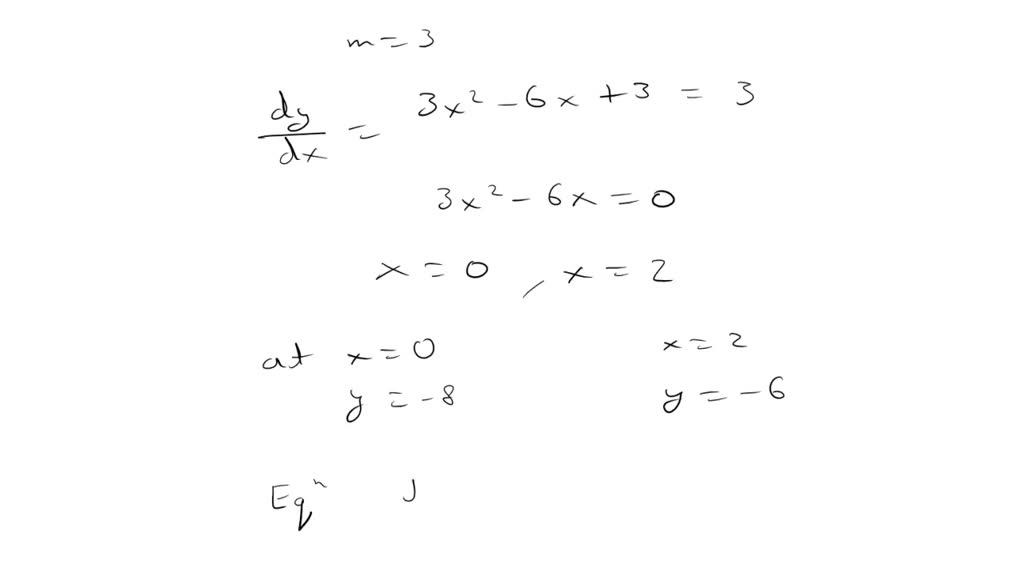 m = 3
dy/dx = 3x² - 6x + 3 = 3
3x² - 6x = 0
x = 0 , x = 2
at x = 0 x = 2
y = -8 y = -6
Eqⁿ